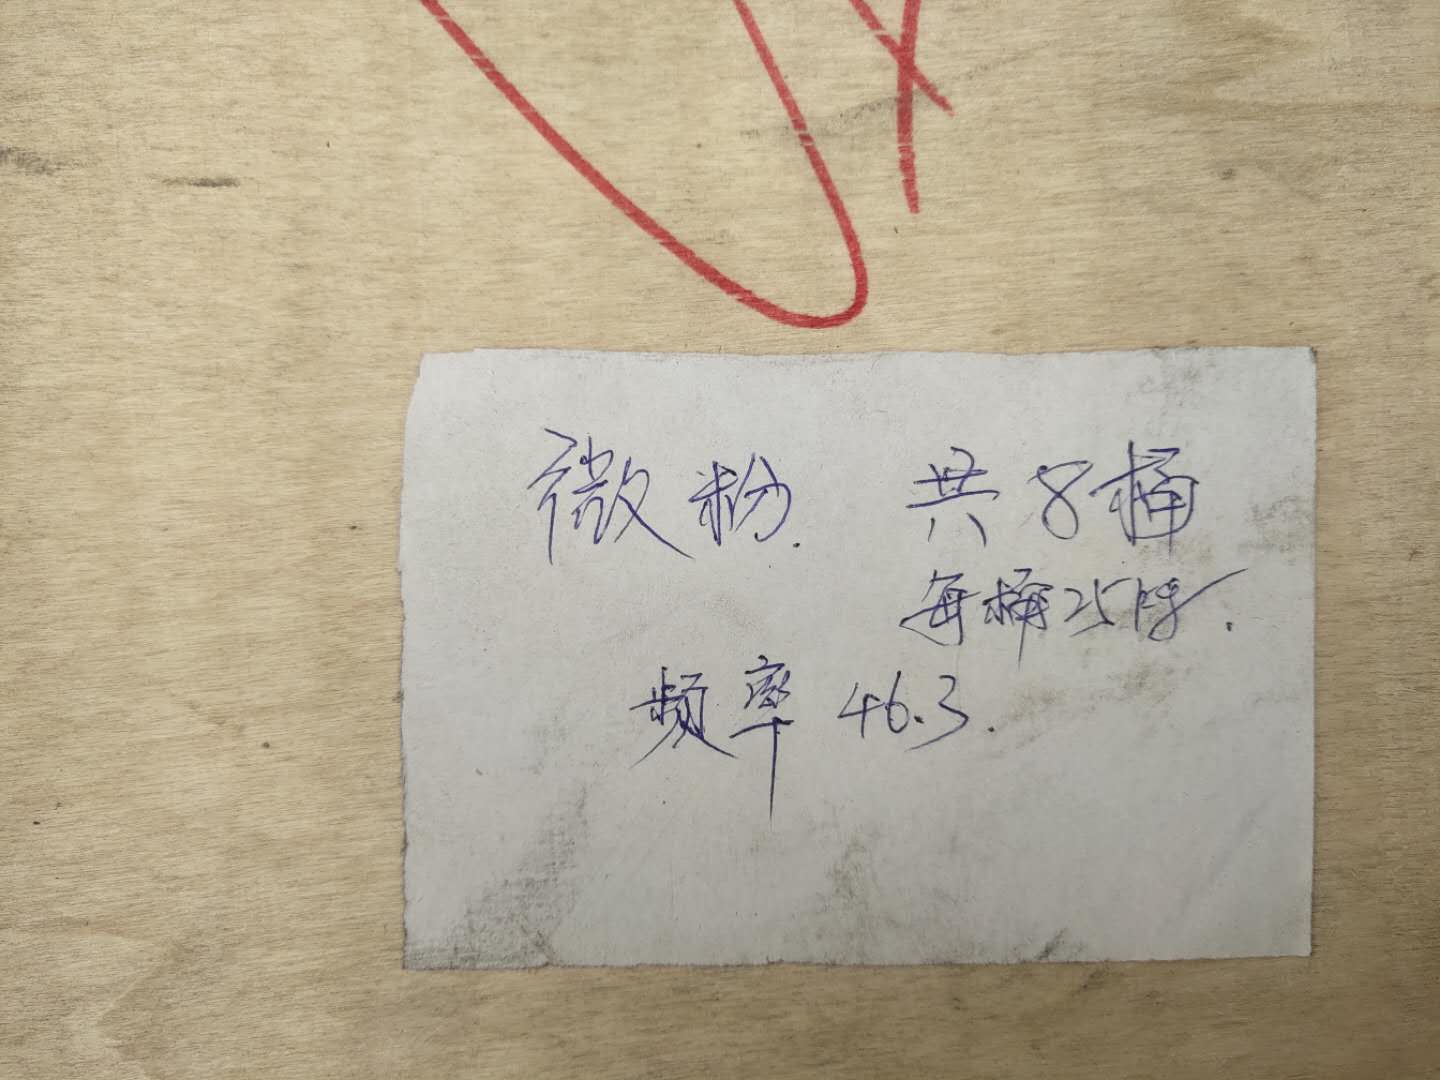 微粉. 共8桶
每桶25kg.
频率 46.3.